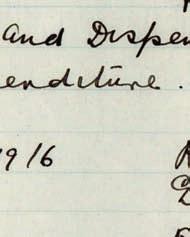 and Dispen
enditure.
1916